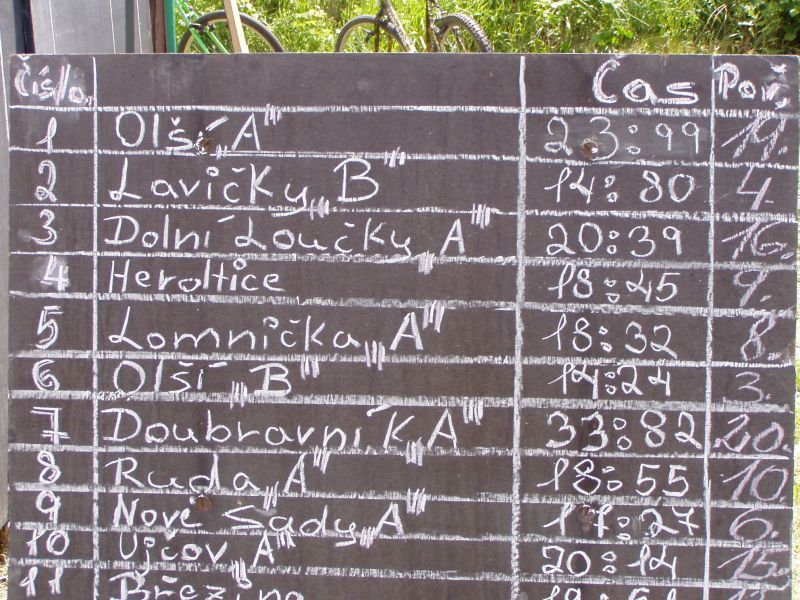 Číslo. Čas Poř.
1 Olší „A" 23:99 19.
2 Lavičky „B" 14:80 4.
3 Dolní Loučky „A" 20:39 16.
4 Heroltice 18:45 9.
5 Lomnička „A" 18:32 8.
6 Olší „B" 14:24 3.
7 Doubravník „A" 33:82 20.
8 Ruda „A" 18:55 10.
9 Nové Sady „A" 17:27 6.
10 Ujčov „A" 20:14 15.
11 Březina